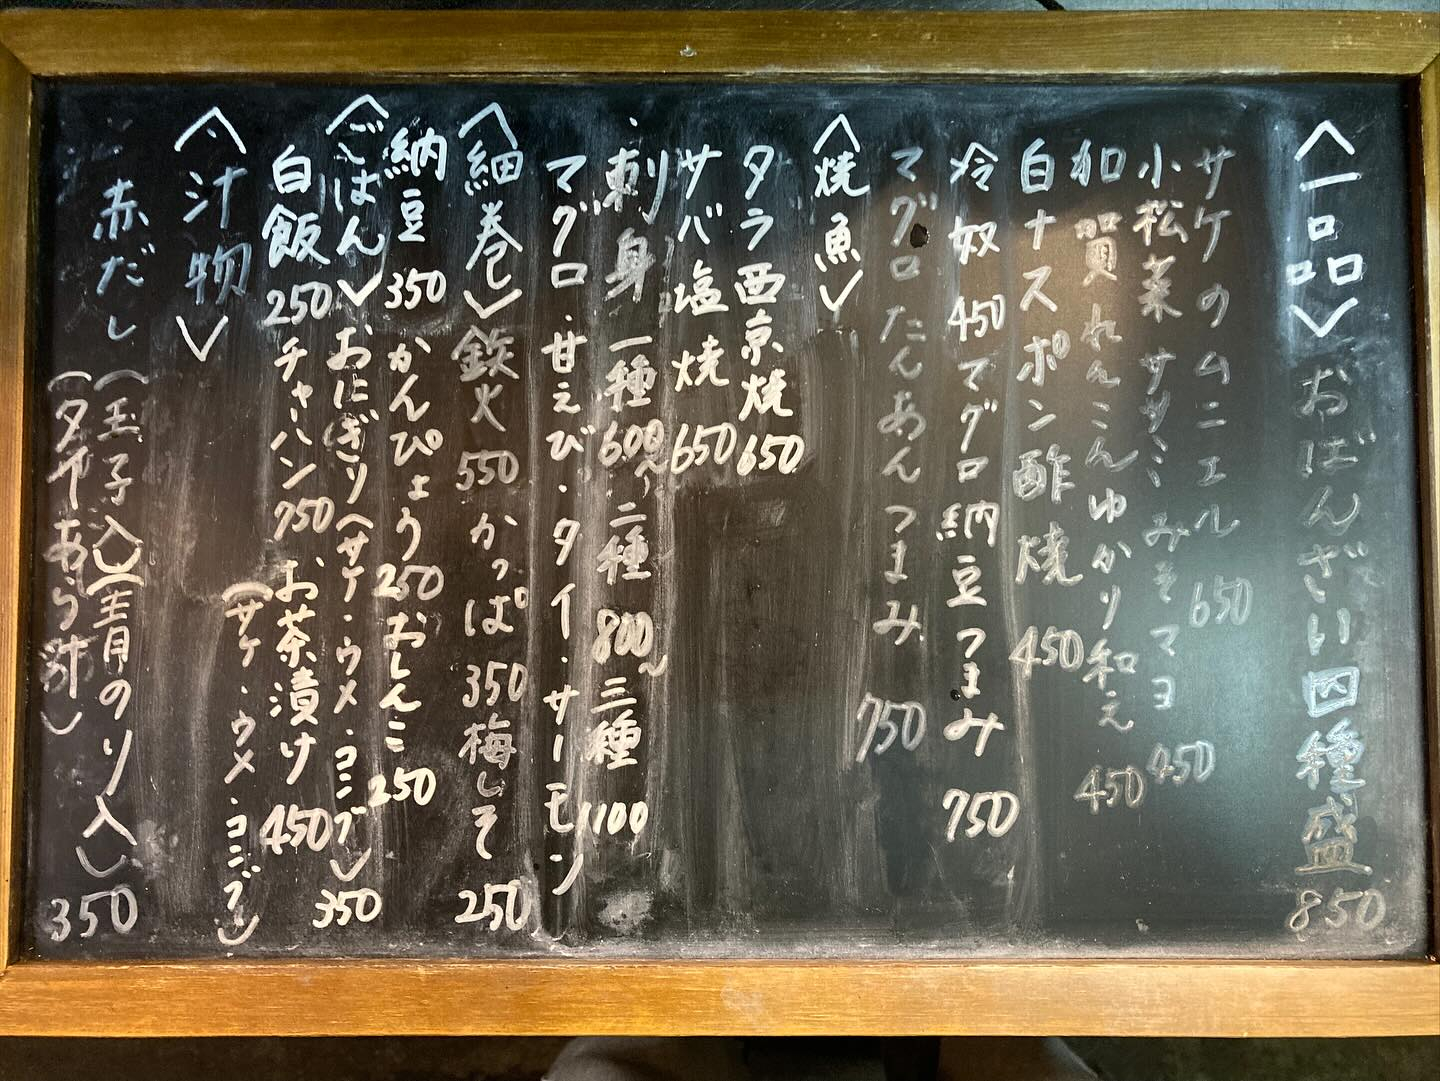 〈一品〉おばんざい四種盛 850
サケのムニエル 650
小松菜ササミみそマヨ 450
加賀れんこんゆかり和え 450
白ナスポン酢焼 450
冷奴 450 マグロ納豆つまみ 750
マグロたんあんつまみ 750
〈焼魚〉
タラ西京焼 650
サバ塩焼 650
刺身 一種 600〜 二種 800〜 三種 1100
マグロ・甘えび・タイ・サーモン
〈細巻〉鉄火 550 かっぱ 350 梅しそ 250
納豆 350 かんぴょう 250 おしんこ 250
〈ごはん〉おにぎり(サケ・ウメ・コンブ) 350
白飯 250 チャーハン 750 お茶漬け 450
(サケ・ウメ・コンブ)
〈汁物〉
赤だし (玉子入)(青のり入) 350
(タイあら汁)